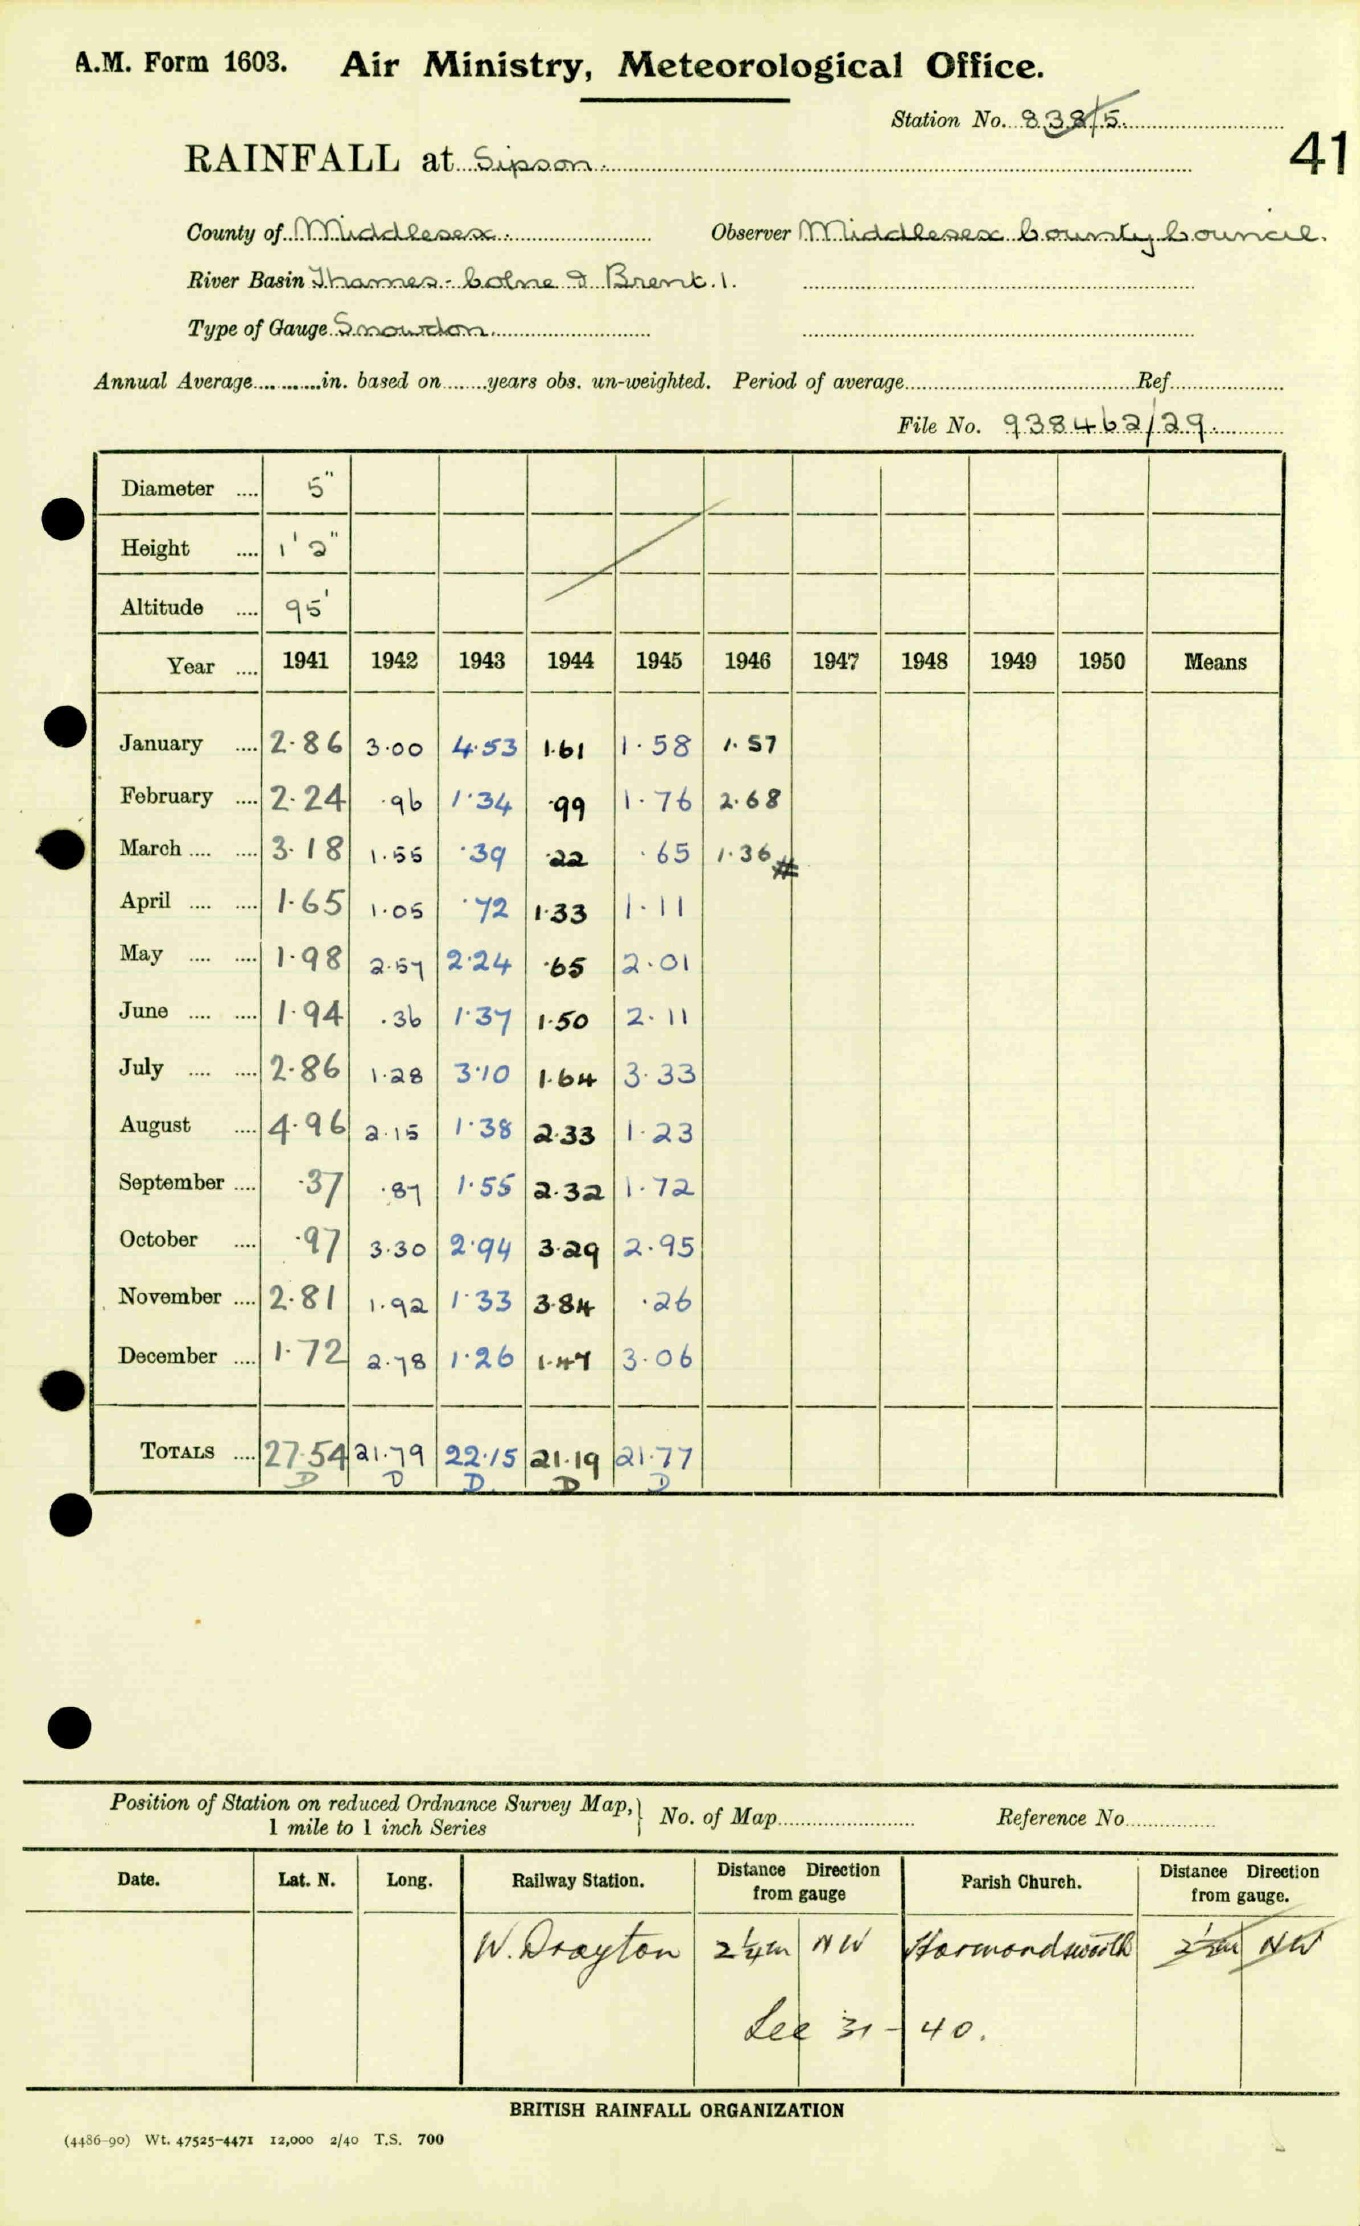 A.M. Form 1603. Air Ministry, Meteorological Office.
Station No. 838/5.
41
RAINFALL at Sipson.
County of Middlesex. Observer Middlesex County Council.
River Basin Thames - Colne & Brent. 1.
Type of Gauge Snowdon.
Annual Average............in. based on........years obs. un-weighted. Period of average........Ref........
File No. 938462/29.
Diameter .... 5"
Height .... 1' 2"
Altitude .... 95'
Year .... 1941 1942 1943 1944 1945 1946 1947 1948 1949 1950 Means
January .... 2.86 3.00 4.53 1.61 1.58 1.57
February .... 2.24 .96 1.34 .99 1.76 2.68
March .... .... 3.18 1.55 .39 .22 .65 1.36 #
April .... .... 1.65 1.05 .72 1.33 1.11
May .... .... 1.98 2.57 2.24 .65 2.01
June .... .... 1.94 .36 1.37 1.50 2.11
July .... .... 2.86 1.28 3.10 1.64 3.33
August .... 4.96 2.15 1.38 2.33 1.23
September .... .37 .87 1.55 2.32 1.72
October .... .97 3.30 2.94 3.29 2.95
November .... 2.81 1.92 1.33 3.84 .26
December .... 1.72 2.78 1.26 1.47 3.06
TOTALS .... 27.54 21.79 22.15 21.19 21.77
D D D. D D
Position of Station on reduced Ordnance Survey Map,} No. of Map........ Reference No........
1 mile to 1 inch Series
Date. Lat. N. Long. Railway Station. Distance Direction from gauge Parish Church. Distance Direction from gauge.
W. Drayton 2¼m NW Harmondsworth 2½m NW
See 31 - 40.
BRITISH RAINFALL ORGANIZATION
(4486-90) Wt. 47525-4471 12,000 2/40 T.S. 700